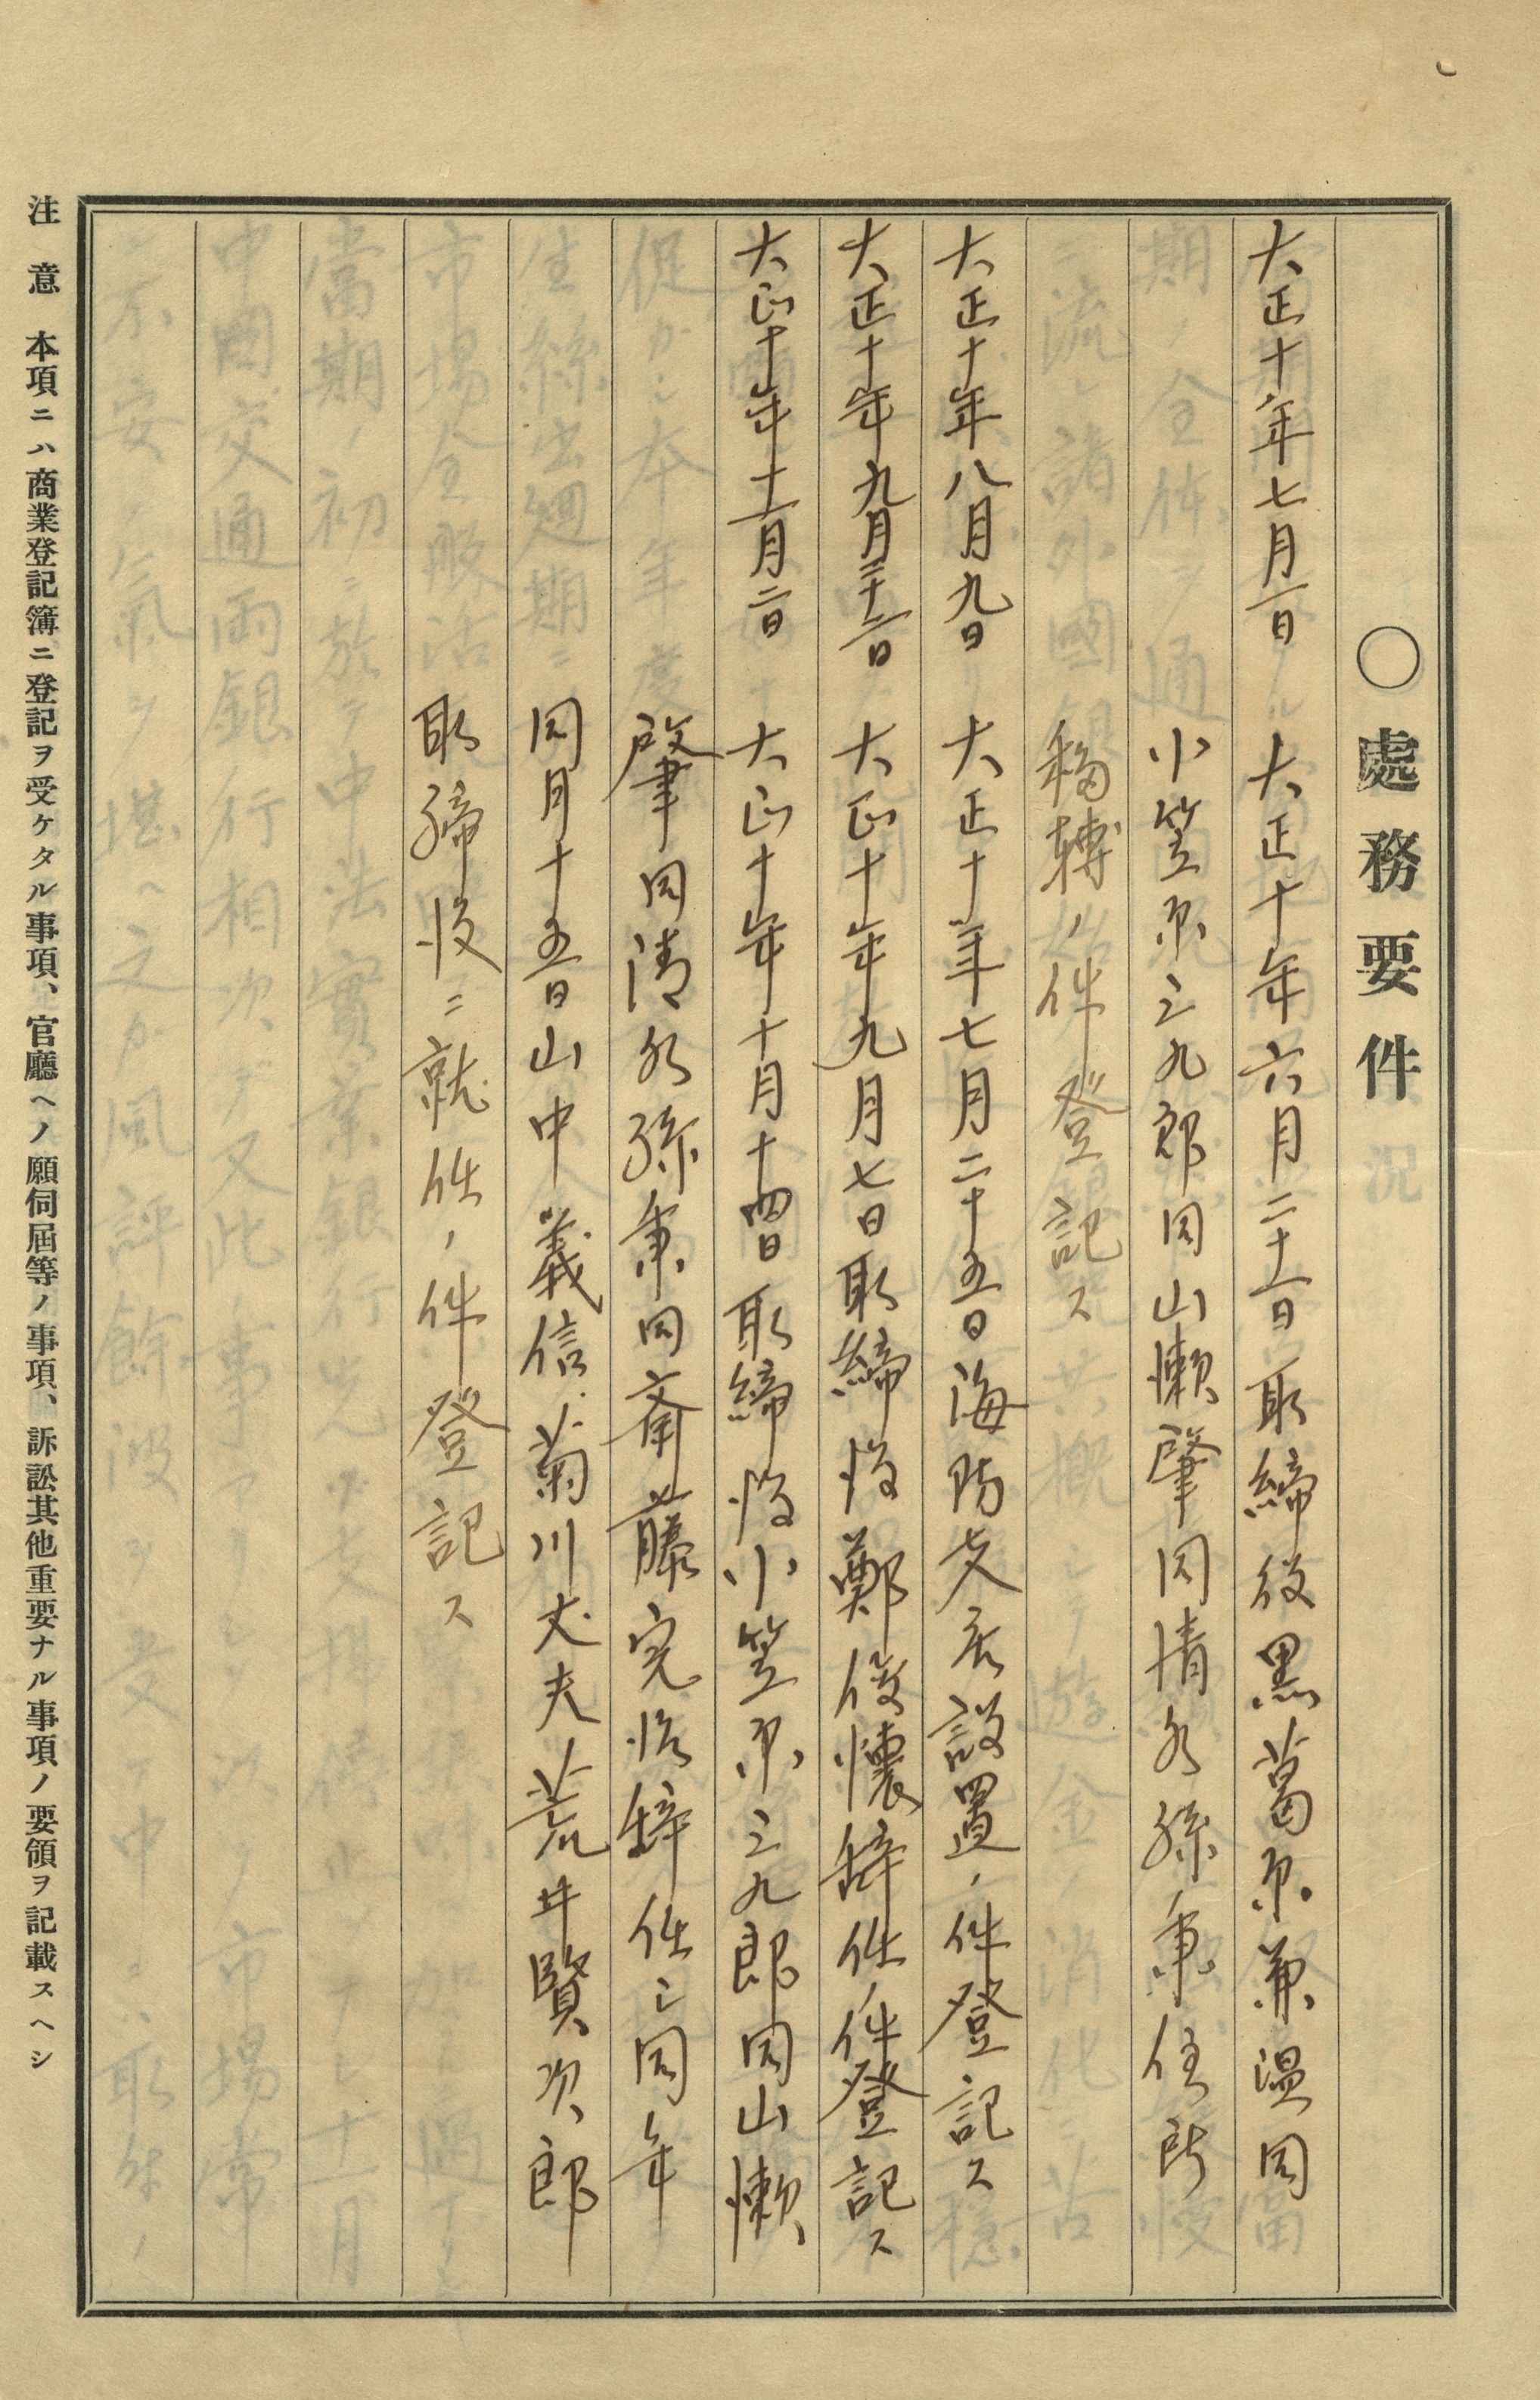 〇處務要件
大正十年七月一日　大正十年六月二十一日取締役黒葛原兼温同
小笠原三九郎同山懶肇同清水孫秉住所
移轉ノ件登記ス
大正十年八月九日　大正十年七月二十五日海防支店設置ノ件登記ス
大正十年九月二十一日　大正十年九月七日取締役鄭俊懐辞任ノ件登記ス
大正十年十一月二日　大正十年十月十四日取締役小笠原三九郎同山懶
肇同清水孫秉同斎藤完治辞任シ同年
同月十五日山中義信菊川丈夫荒井賢次郎
取締役ニ就任ノ件登記ス
注意　本項ニハ商業登記簿ニ登記ヲ受ケタル事項、官廳ヘノ願伺屆等ノ事項、訴訟其他重要ナル事項ノ要領ヲ記載スヘシ